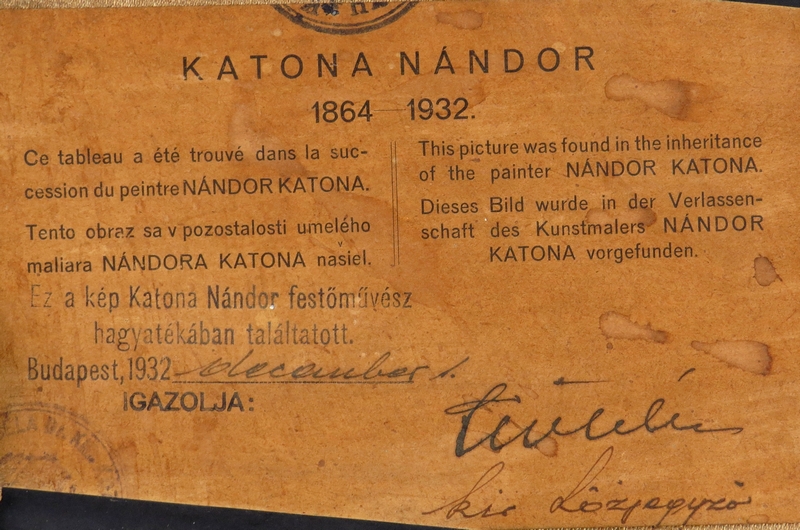 KATONA NÁNDOR
1864—1932.
Ce tableau a été trouvé dans la suc-
cession du peintre NÁNDOR KATONA.
Tento obraz sa v pozostalosti umelého
maliara NÁNDORA KATONA našiel.
This picture was found in the inheritance
of the painter NÁNDOR KATONA.
Dieses Bild wurde in der Verlassen-
schaft des Kunstmalers NÁNDOR
KATONA vorgefunden.
Ez a kép Katona Nándor festőművész
hagyatékában találtatott.
Budapest, 1932 december 1.
IGAZOLJA:
kir közjegyző